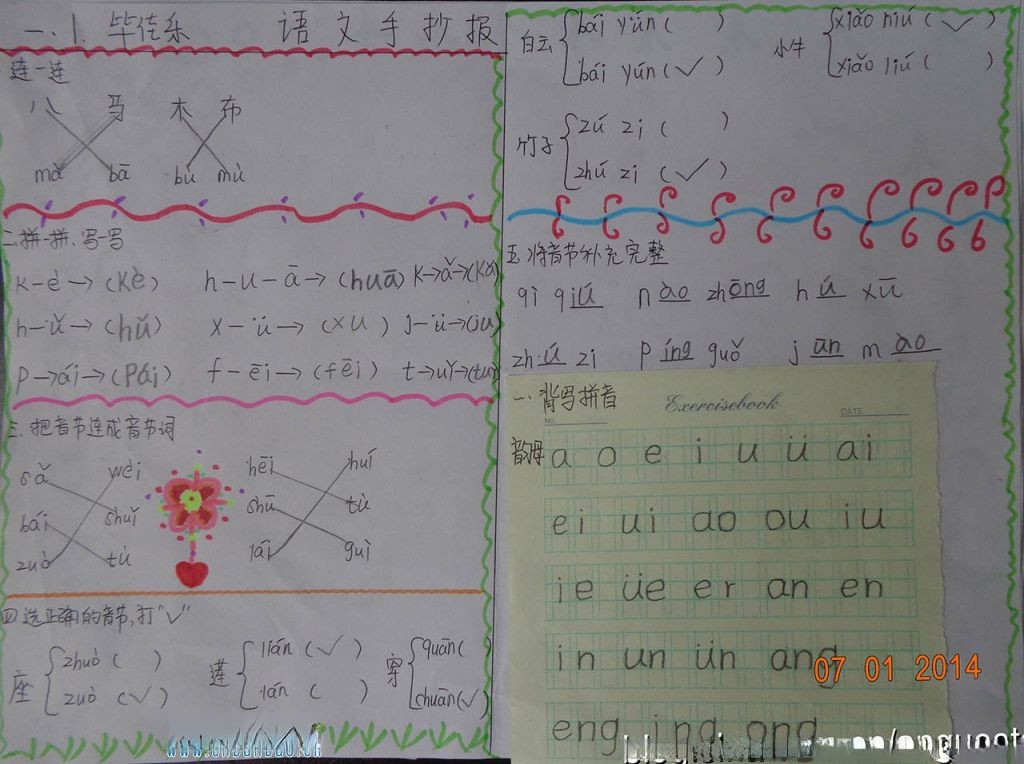 一.1. 毕佳乐 语文手抄报
一连一连
八 马 木 布
mǎ bā bù mù
二.拼一拼、写一写
k-è→(kè) h-u-ā→(huā) k→ǎ→(kǎ)
h-ǔ→(hǔ) x-ü→(xu) j-ü→(ju)
p→ái→(Pái) f-ēi→(fēi) t→uǐ→(tuǐ)
三.把音节连成音节词
sǎ wèi hēi huí
bái shuǐ shū tù
zuò tù lái guì
四 选正确的音节,打"√"
座 zhuò ( ) 莲 lián (√) 穿 quān( )
zuò (√) lán ( ) chuān(√)
白云 bái yún ( ) 小牛 xiǎo niú (√)
bái yún (√) xiǎo liú ( )
竹子 zú zi ( )
zhú zi (√)
五、将音节补充完整
qì qiú n ào zhōng h ú xū
zh ú zi p íng guǒ j ān m ào
一.背写拼音 Exercisebook
No. DATE
韵母 a o e i u ü ai
ei ui ao ou iu
ie üe er an en
in un ün ang
07 01 2014
eng ing ong